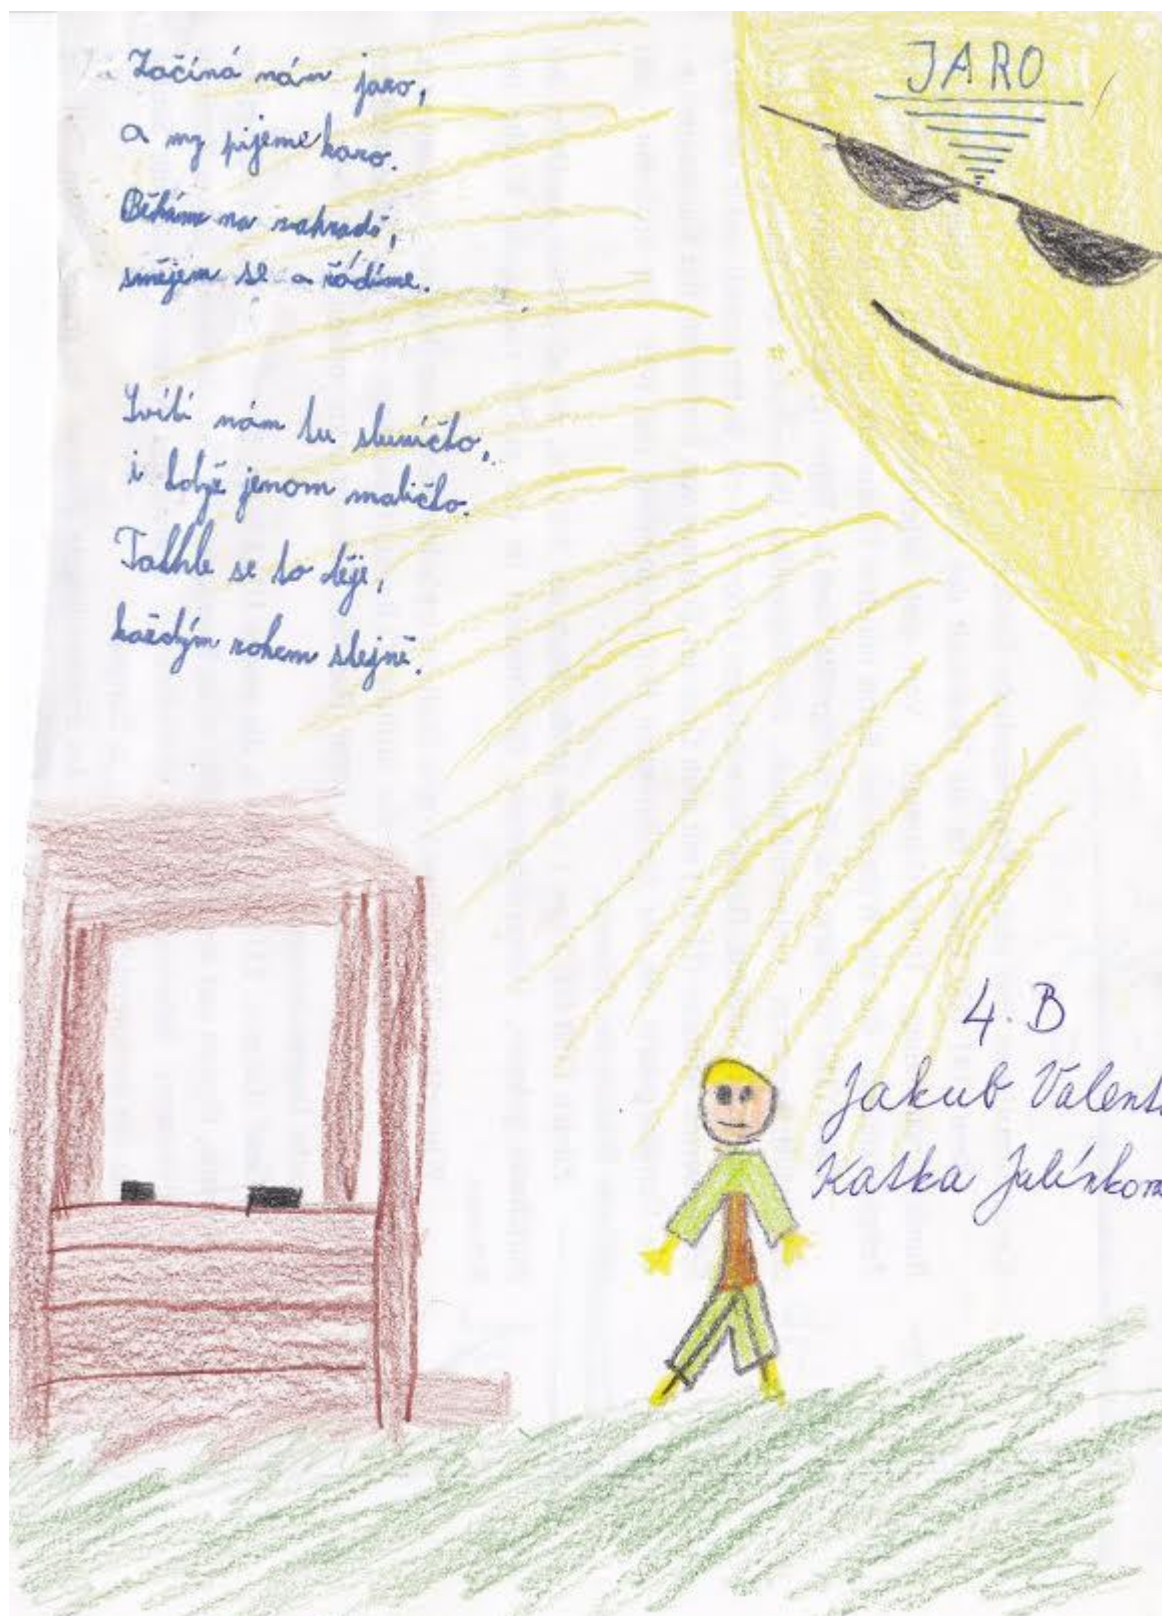 JARO
Začíná nám jaro,
a my pijeme karo.
Běháme na zahradě,
smějem se a řádíme.
Svítí nám tu sluníčko,
i když jenom maličko.
Takhle se to děje,
každým rokem stejně.
4. B
Jakub Valent
Katka Julínkova